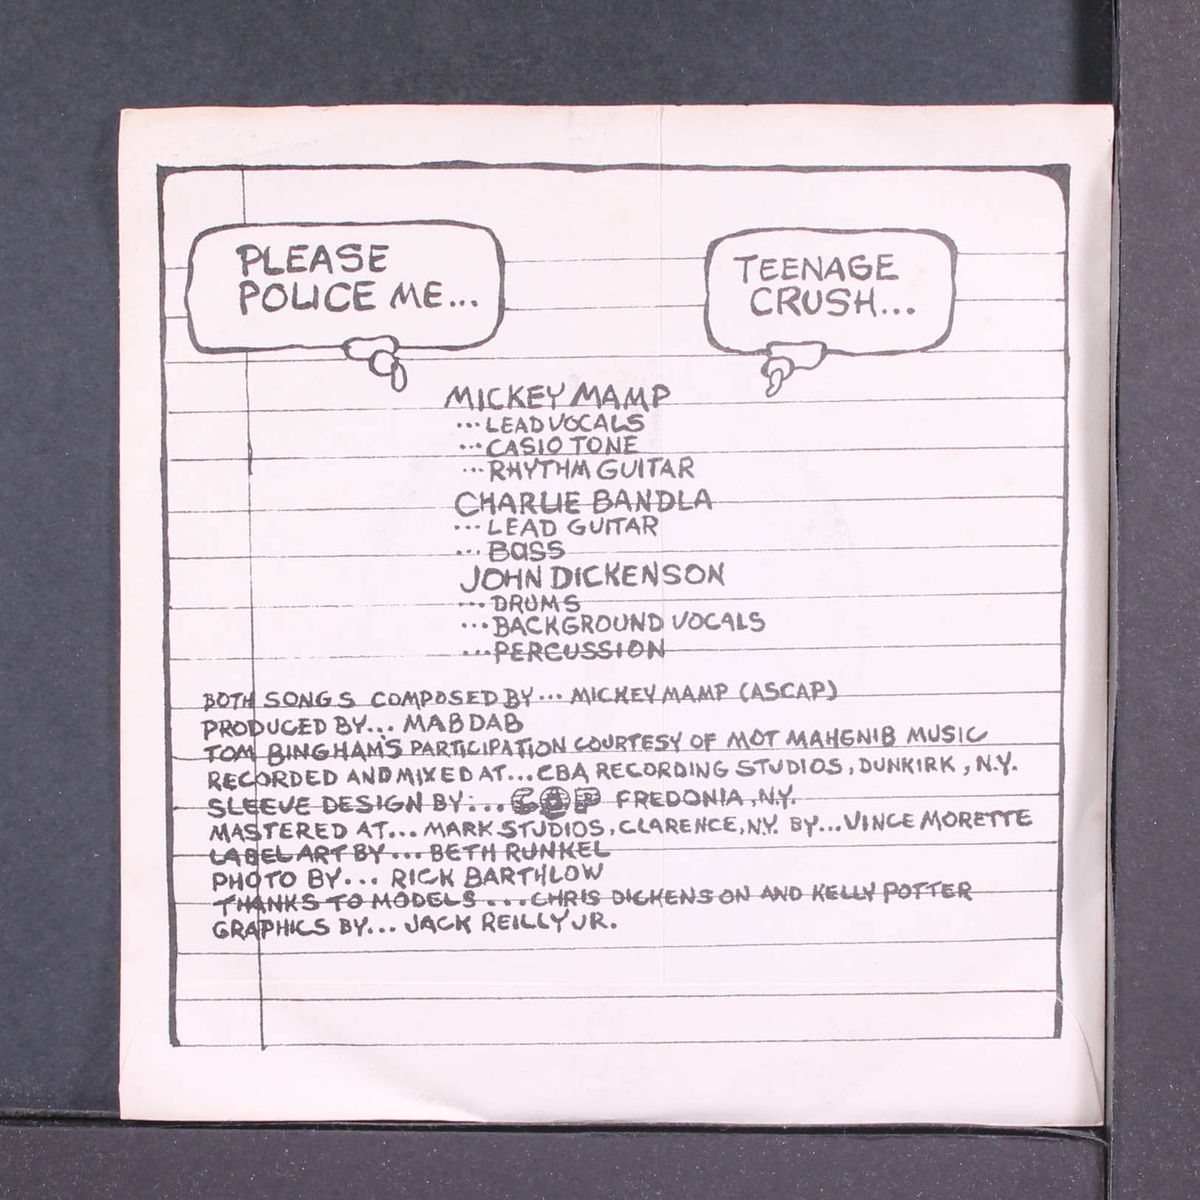 PLEASE
POLICE ME...
TEENAGE
CRUSH...
MICKEY MAMP
...LEAD VOCALS
...CASIO TONE
...RHYTHM GUITAR
CHARLIE BANDLA
...LEAD GUITAR
...BASS
JOHN DICKENSON
...DRUMS
...BACKGROUND VOCALS
...PERCUSSION
BOTH SONGS COMPOSED BY... MICKEY MAMP (ASCAP)
PRODUCED BY... MABDAB
TOM BINGHAM'S PARTICIPATION COURTESY OF MOT MAHGNIB MUSIC
RECORDED AND MIXED AT...CBA RECORDING STUDIOS, DUNKIRK, N.Y.
SLEEVE DESIGN BY:... FREDONIA, N.Y.
MASTERED AT... MARK STUDIOS, CLARENCE, N.Y. BY...VINCE MORETTE
LABEL ART BY... BETH RUNKEL
PHOTO BY... RICK BARTHLOW
THANKS TO MODELS ...CHRIS DICKENSON AND KELLY POTTER
GRAPHICS BY... JACK REILLY JR.